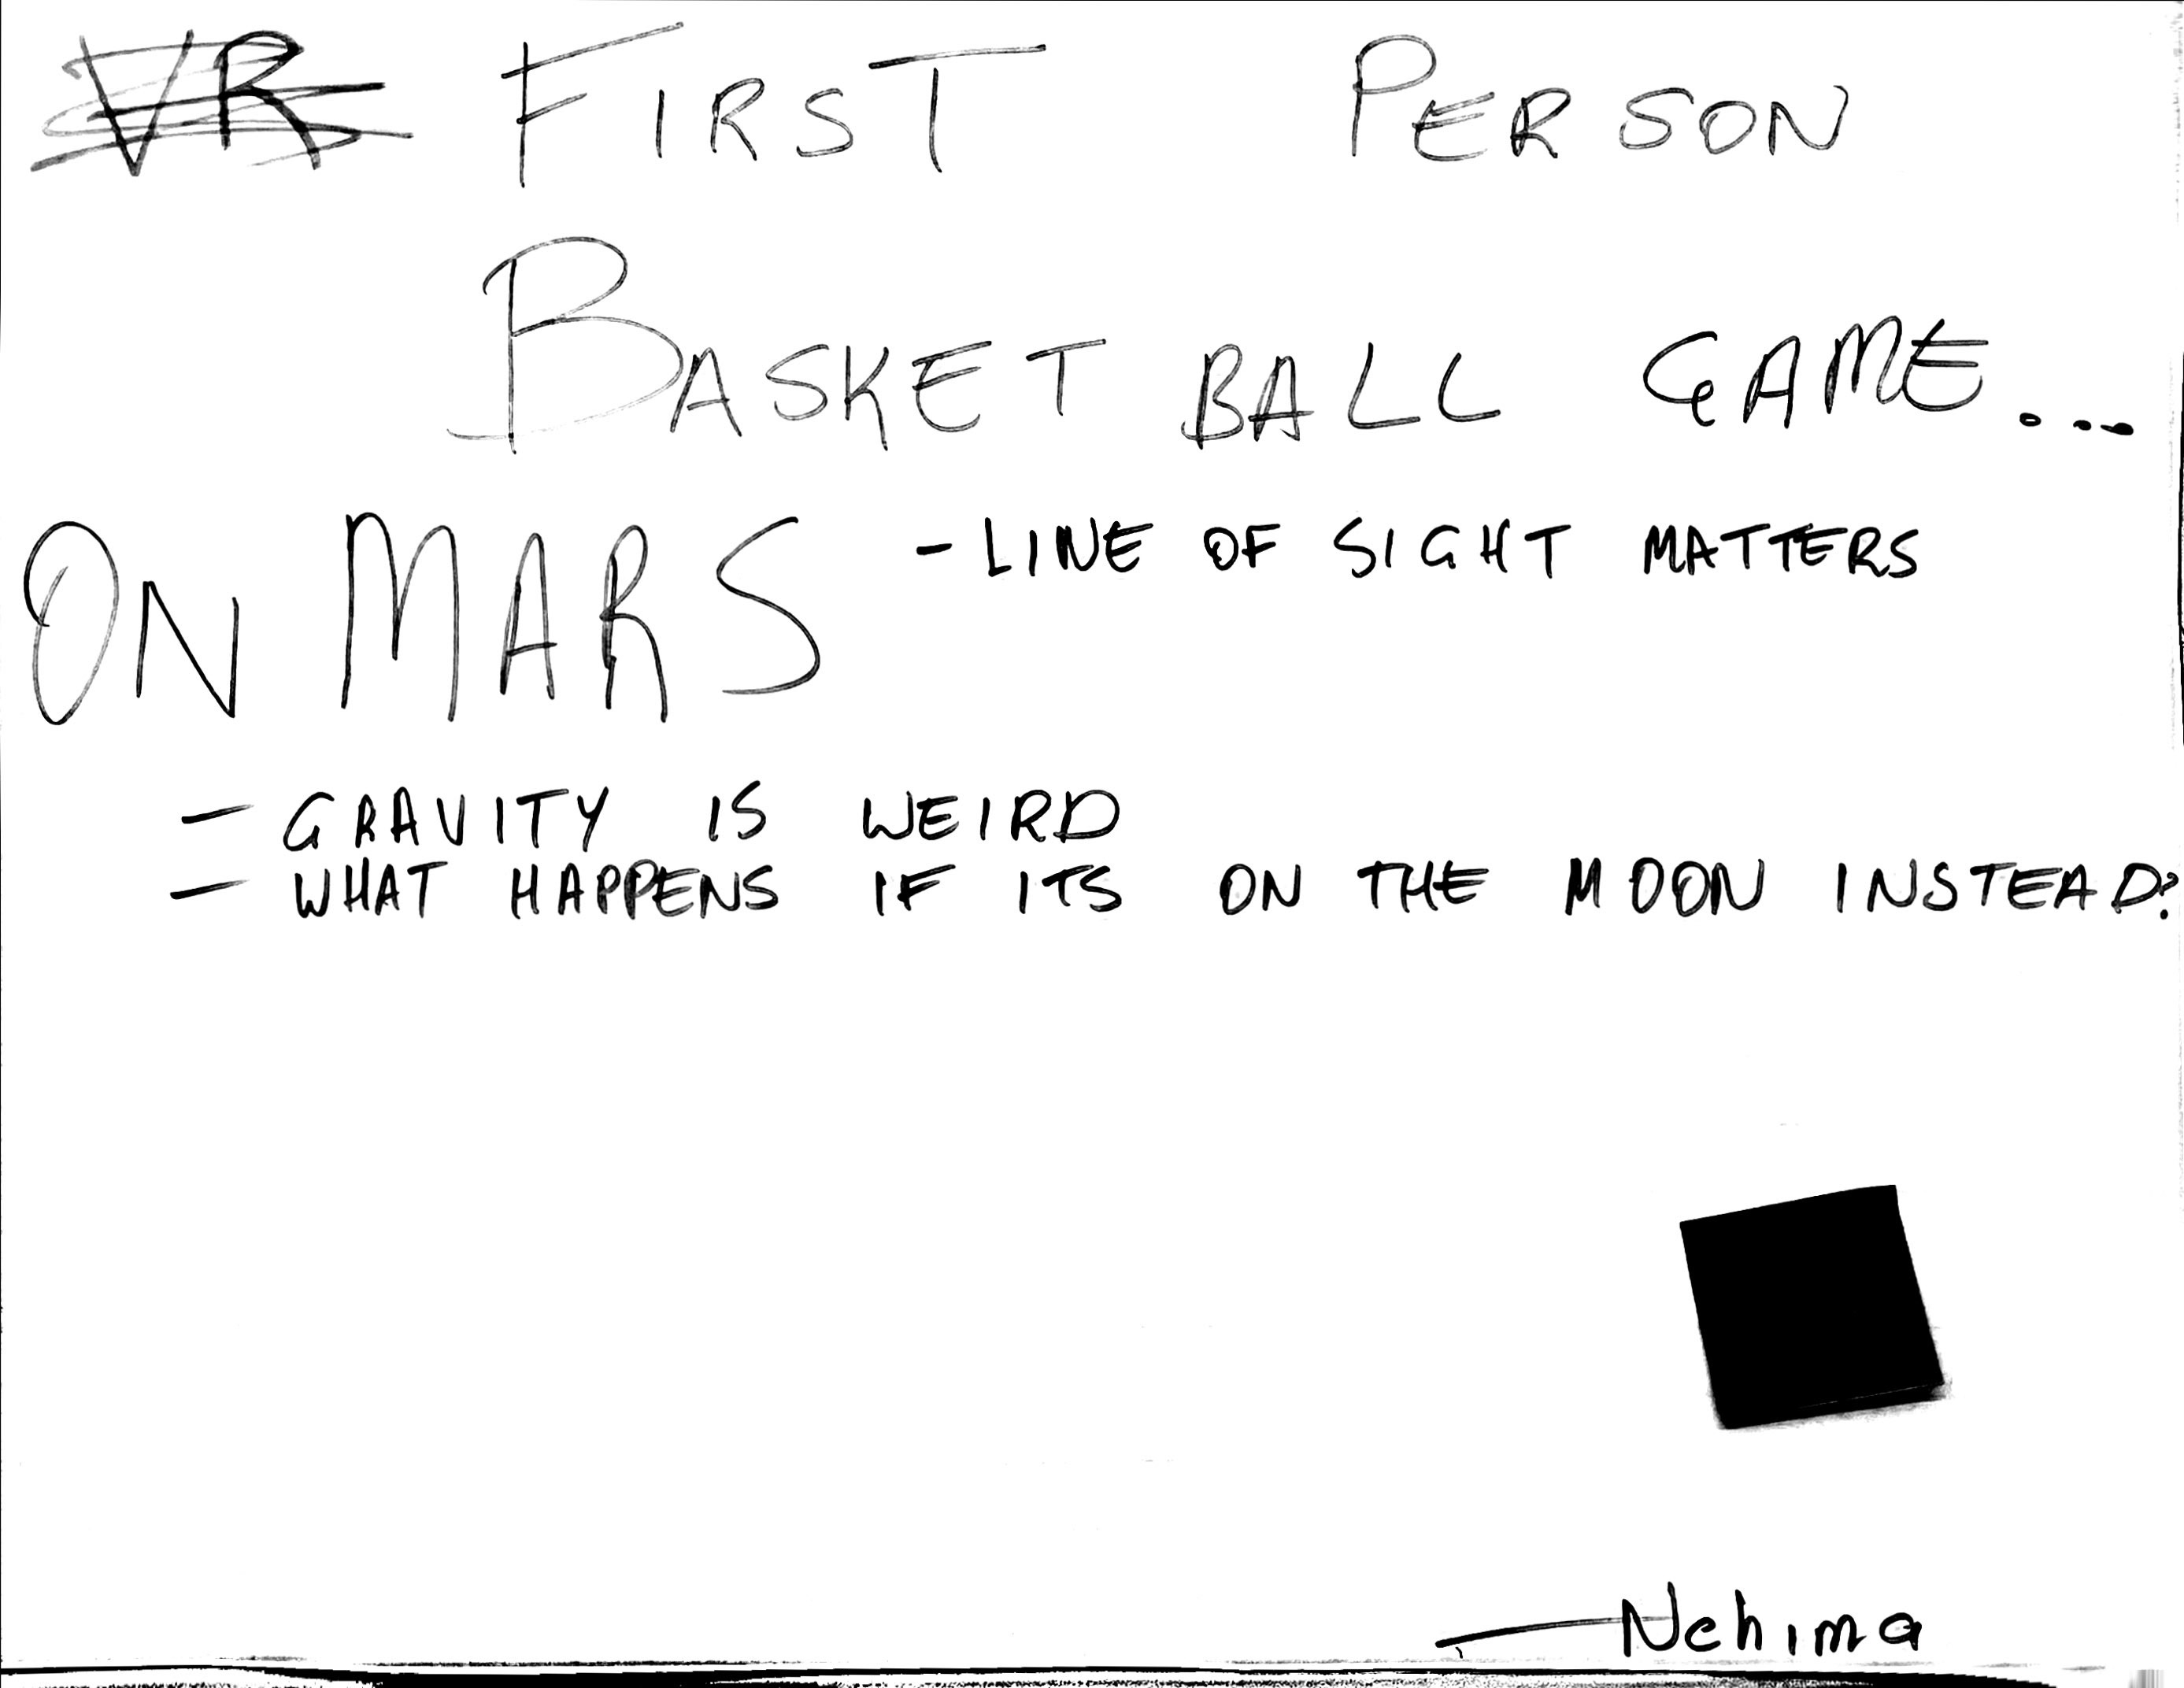 VR FIRST PERSON
BASKET BALL GAME...
ON MARS
- LINE OF SIGHT MATTERS
- GRAVITY IS WEIRD
- WHAT HAPPENS IF ITS ON THE MOON INSTEAD?
— Nehima